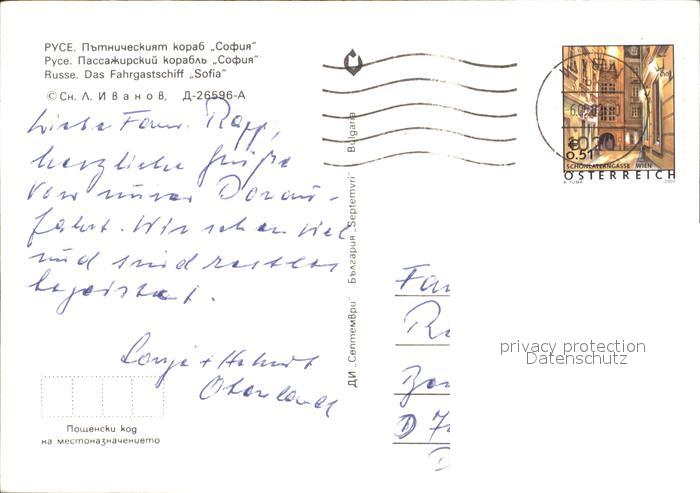 РУСЕ. Пътническият кораб „София“
Русе. Пассажирский корабль „София“
Russe. Das Fahrgastschiff „Sofia“
© Сн. Л. Иванов, Д-26596-А
Liebe Fam. Rapp,
herzliche Grüße
von unser Donau-
fahrt. Wir sehen viel
und sind restlos
begeistert.
Sonja + Helmut
ДИ „Септември“ България „Septemvri“ Bulgaria
Пощенски код
на местоназначението
WIEN
€
0.51
SCHÖNLATERNGASSE WIEN
ÖSTERREICH
A. TUMA 2002
Fam
D 7
privacy protection
Datenschutz